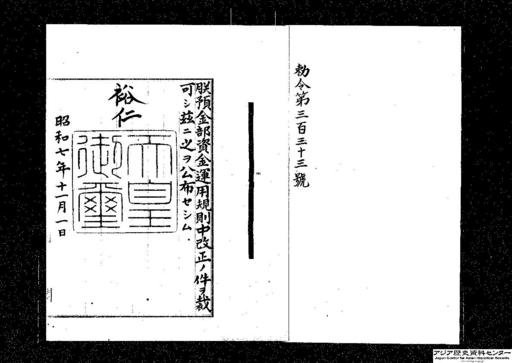 勅令第三百三十三號
朕預金部資金運用規則中改正ノ件ヲ裁
可シ茲ニ之ヲ公布セシム
裕仁
天皇
御璽
昭和七年十一月一日
アジア歴史資料センター
Japan Center for Asian Historical Records